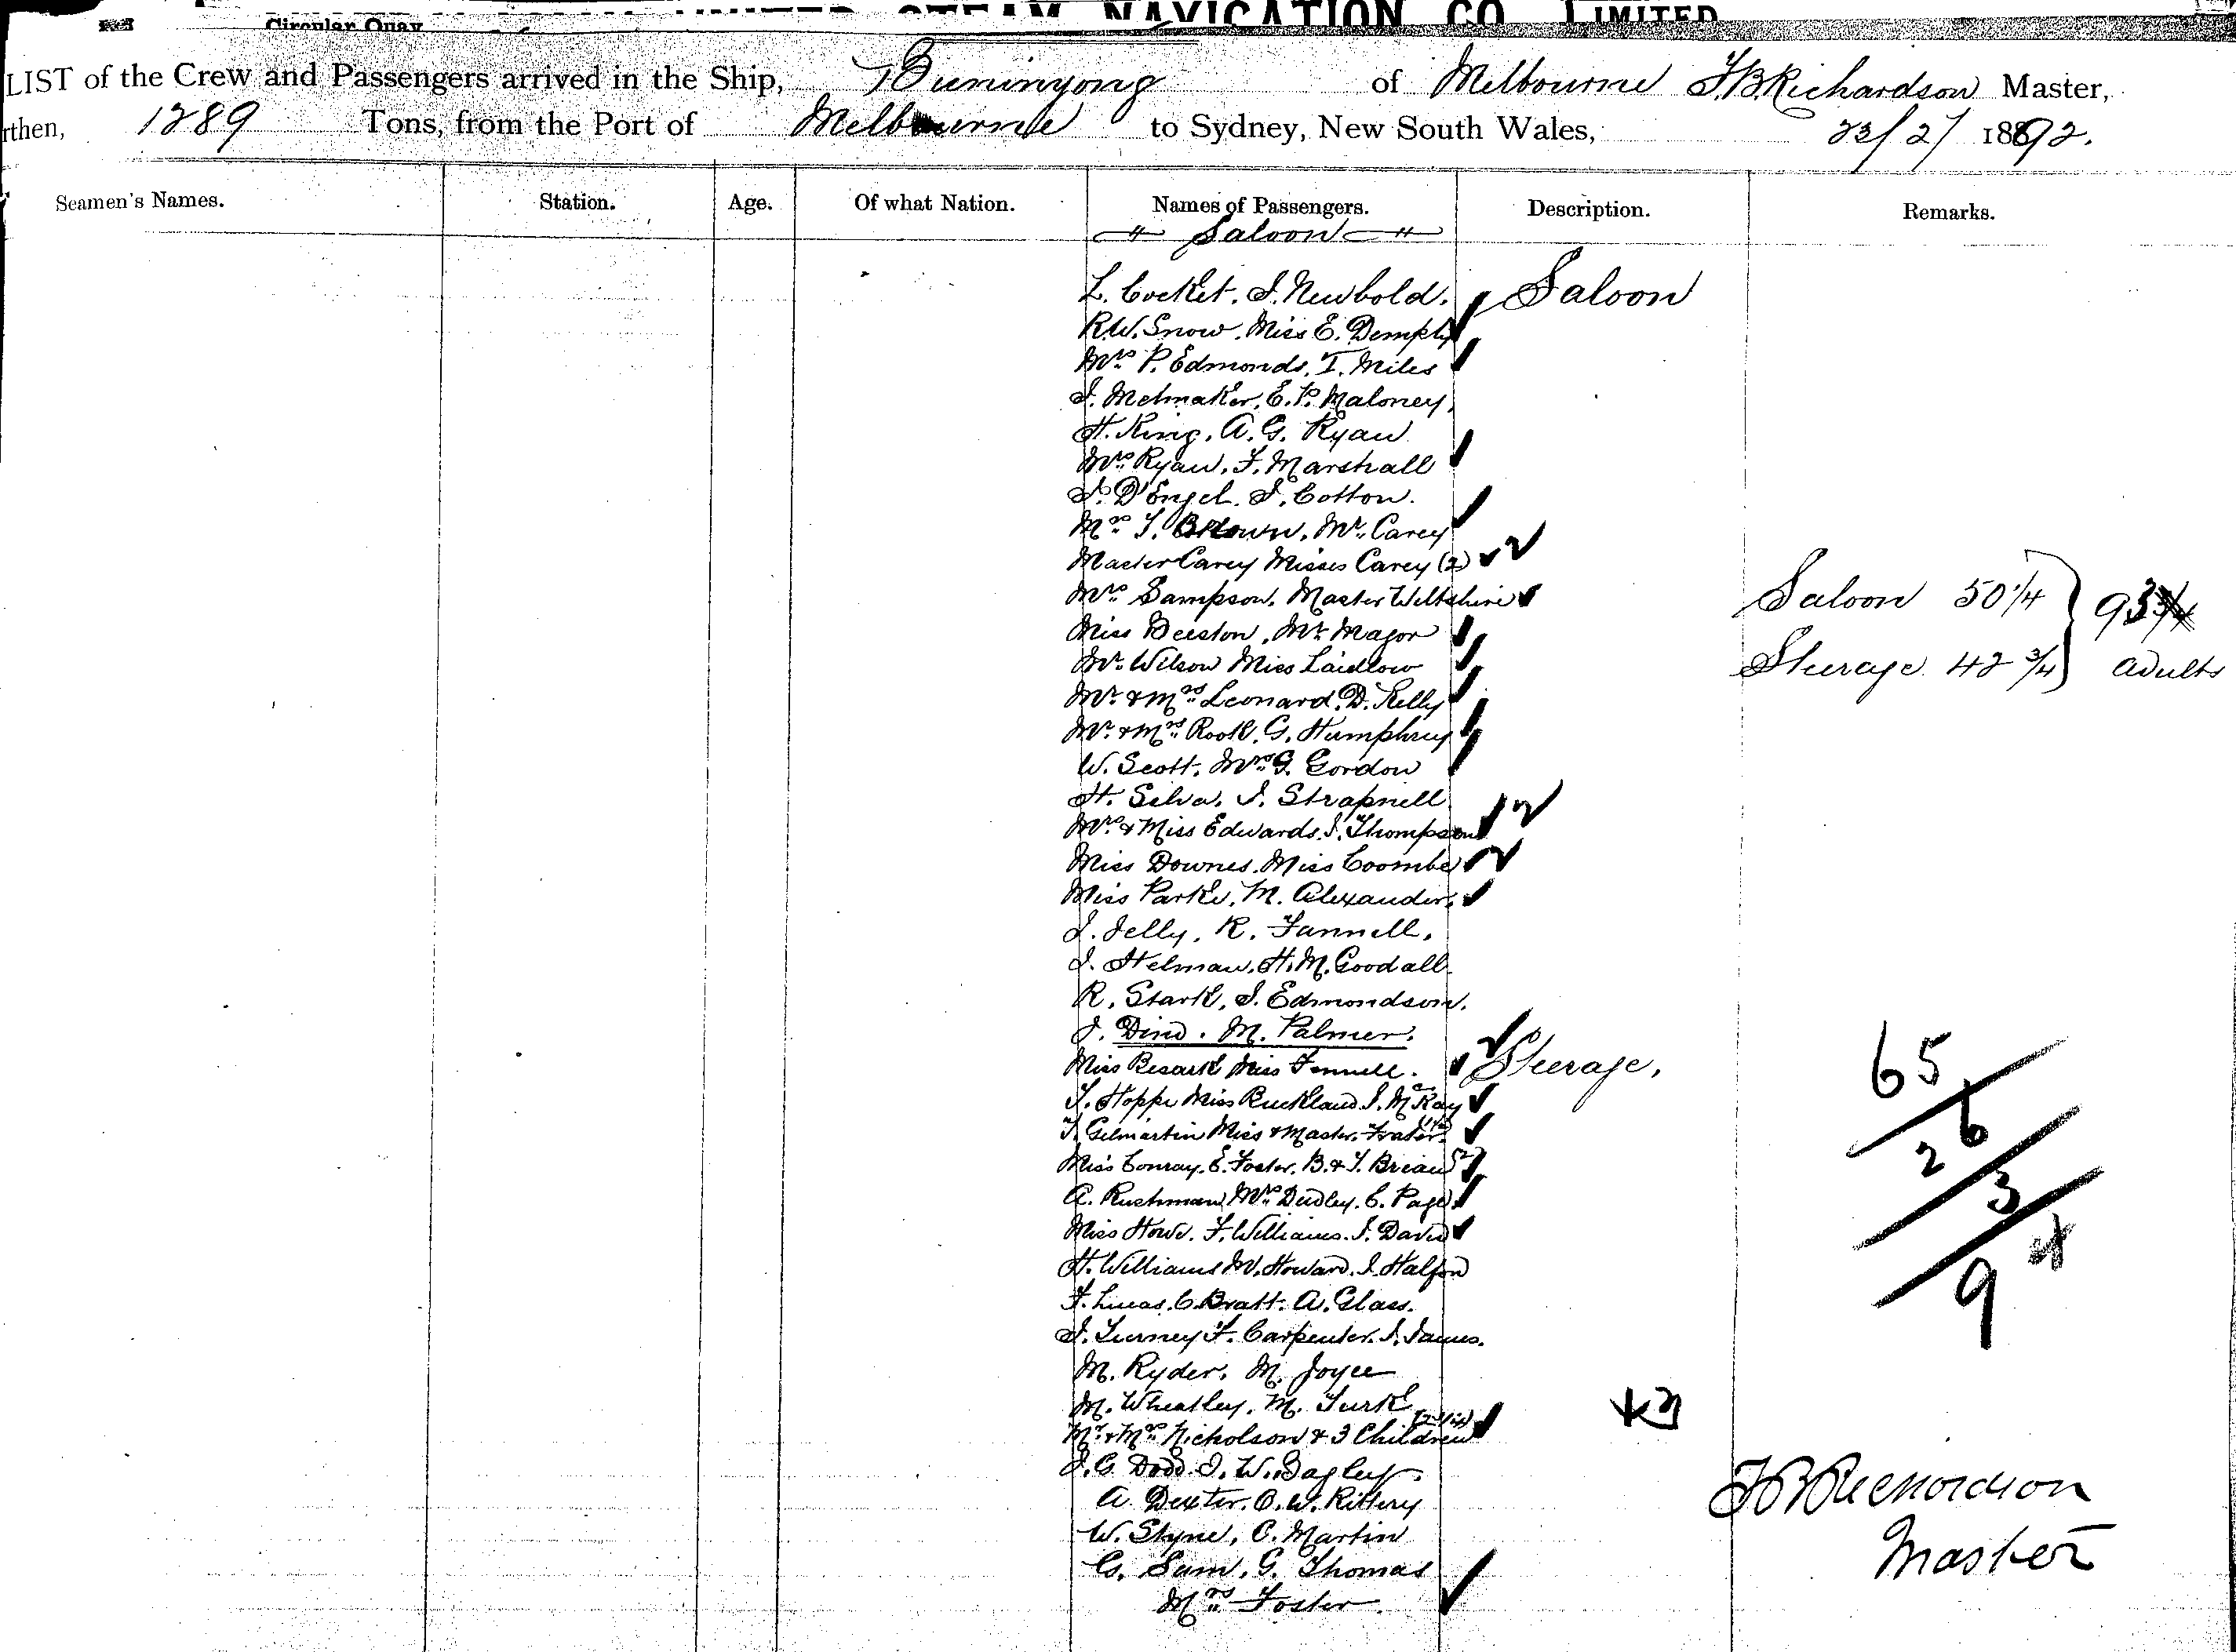 STEAM NAVIGATION CO. LIMITED
Circular Quay
LIST of the Crew and Passengers arrived in the Ship, Buninyong of Melbourne F.B.Richardson Master,
rthen, 1289 Tons, from the Port of Melbourne to Sydney, New South Wales, 23/2/ 1892.
Seamen's Names. Station. Age. Of what Nation. Names of Passengers. Description. Remarks.
" Saloon "
L. Cocket. J. Newbold. Saloon
R.W. Snow. Miss E.
Mrs P. Edmonds. T. Miles
J. Metmaker. E.P. Maloney,
H. King. A.G. Ryan
Mrs Ryan. F. Marshall
J. D'Engel. J. Cotton.
Mrs T. Brown. Mr. Carey
Master Carey Misses Carey (2)
Mrs Sampson. Master Wiltshire
Miss Beeston. Mr. Major
Mr. Wilson Miss Laidlow
Mr. & Mrs Leonard. D. Kelly
Mr. & Mrs Rook. G. Humphrey
W. Scott. Mrs G. Gordon
H. Silva. J. Strapnell
Mrs & Miss Edwards. J. Thompson
Miss Downes. Miss Coombe
Miss Parke. M. Alexander.
J. Jelly. R. Fannell.
J. Helman. H.M. Goodall
R. Stark. J. Edmondson.
J. Dind. M. Palmer.
Miss Miss Fennell. Steerage.
T. Hoppe Miss Buckland J. McKay
T. Gilmartin Miss & Master Frater
Miss Conray. E. Foster. B. & T. Brian (2)
A. Rushman Mrs Dudley. C. Page
Miss Howe. F. Williams. J. David
H. Williams W. Howard. J. Halfon
F. Lucas. C. Bratt. A. Glass.
J. Turney F. Carpenter. J. James.
M. Ryder. M. Joyce
M. Wheatley. M. Turk
Mr. & Mrs Nicholson & 3 Children
J.G. Dodd. J.W. Bagley
A. Dexter. C.W. Rittery
W. Slyne. C. Martin
G. Sum. G. Thomas
Mrs Foster.
Saloon 50 1/4
93
Steerage 42 3/4 adults
65
26
3
9
F B Richardson
Master